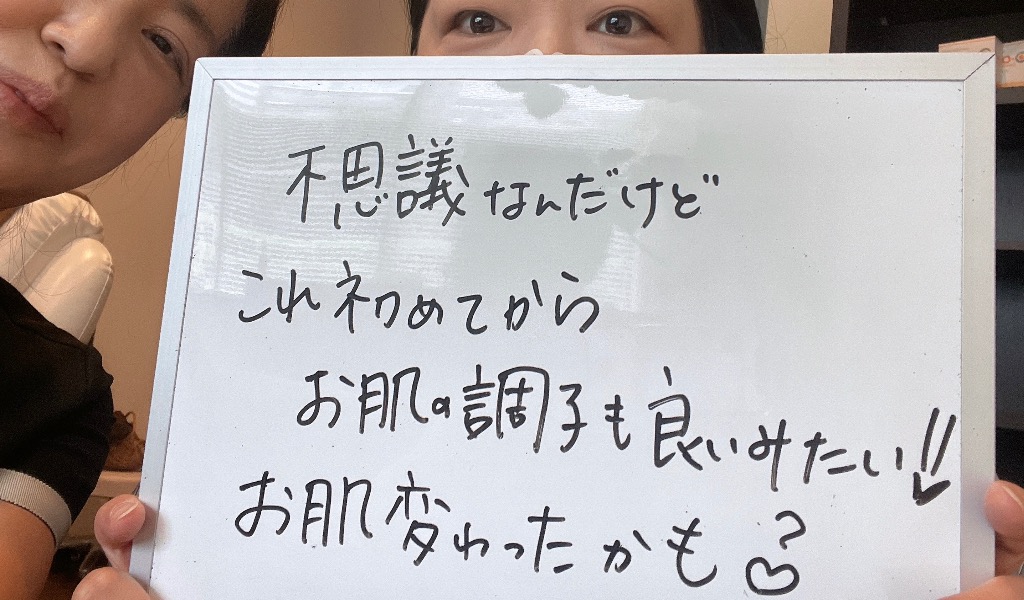 不思議なんだけど
これ初めてから
お肌の調子も良いみたい!!
お肌変わったかも?